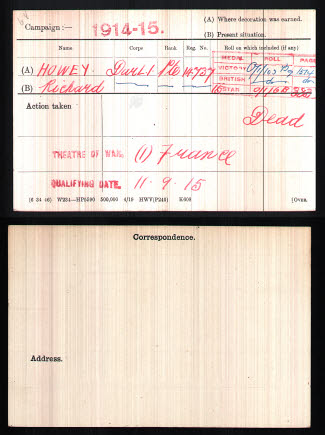 Campaign :— 1914-15.
(A) Where decoration was earned.
(B) Present situation.
Name Corps Rank Reg. No. Roll on which included (if any)
MEDAL ROLL PAGE
(A) HOWEY. Dur L I Pte
VICTORY
BRITISH do do
(B) Richard
STAR
Action taken
Dead
THEATRE OF WAR. (1) France
QUALIFYING DATE. 11. 9. 15
(6 34 46) W234—HP5590 500,000 4/19 HWV(P240) K608 [Over.
Correspondence.
Address.